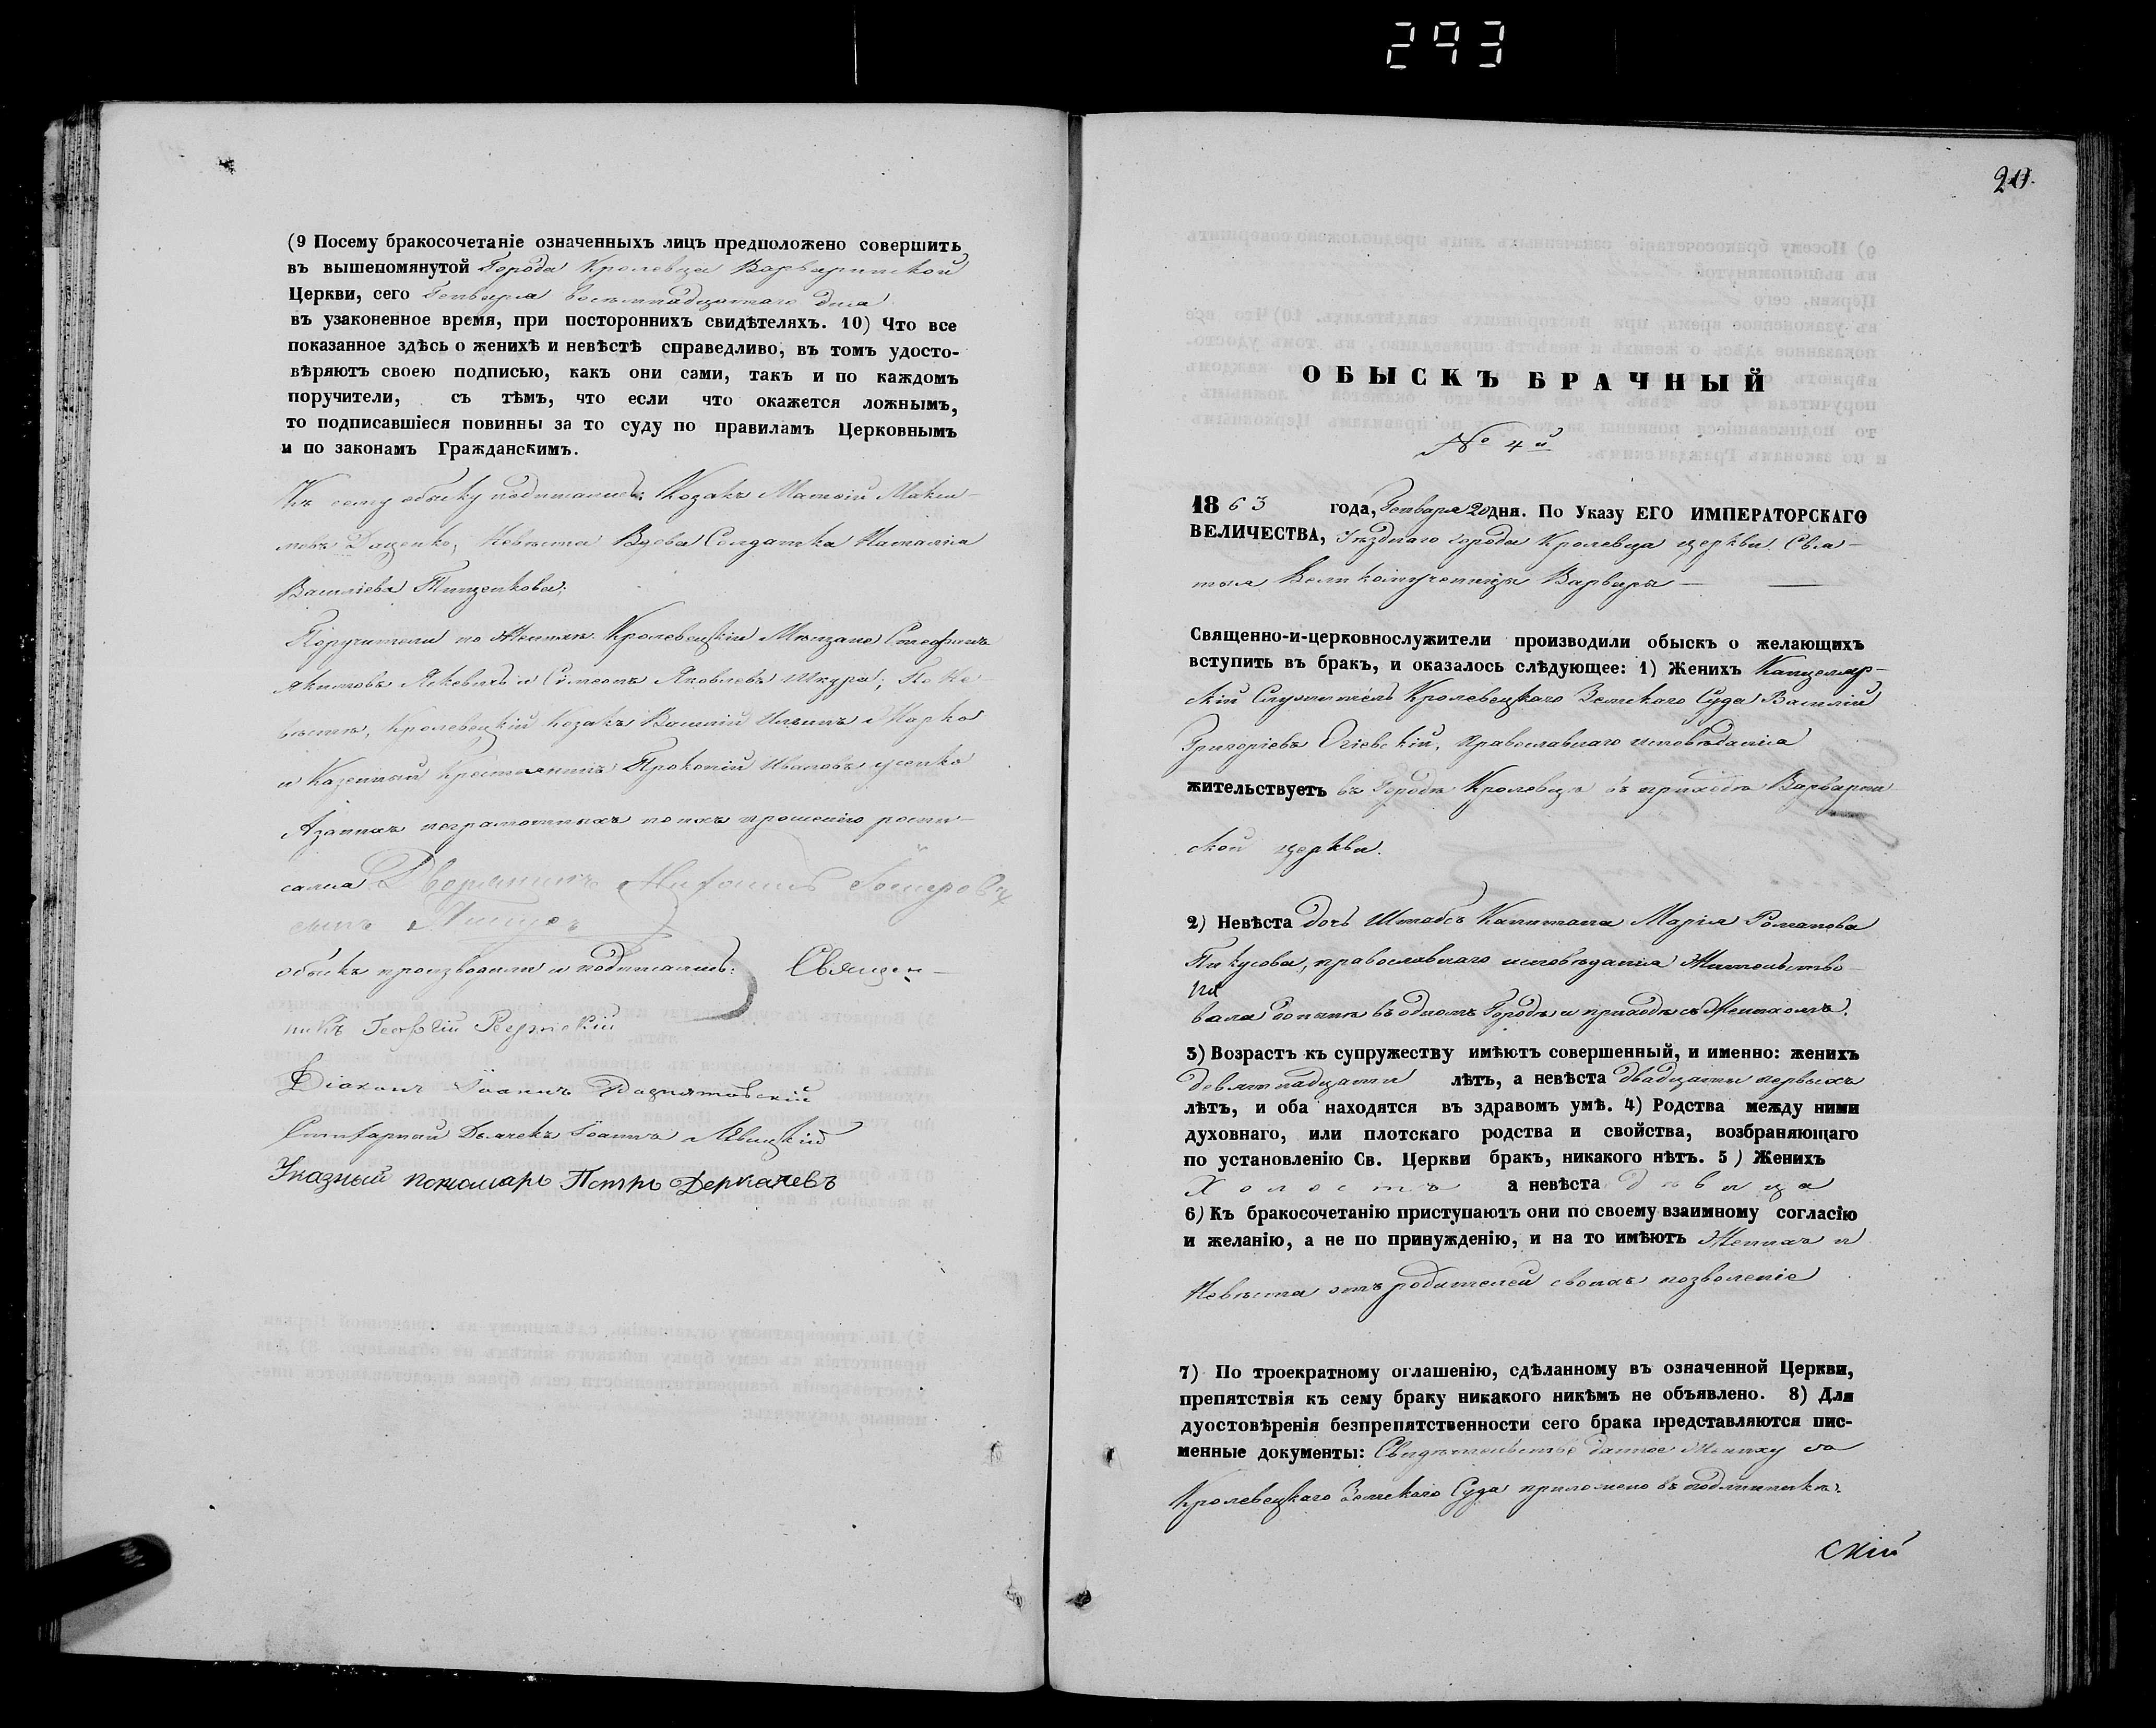 293
(9 Посему бракосочетаніе означенныхъ лицъ предположено совершить
въ вышепомянутой Города Кролевца Варваринской
Церкви, сего Генваря восемнадцатаго дня
въ узаконенное время, при постороннихъ свидѣтеляхъ. 10) Что все
показанное здѣсь о женихѣ и невѣстѣ справедливо, въ томъ удосто-
вѣряютъ своею подписью, какъ они сами, такъ и по каждомъ
поручители, съ тѣмъ, что если что окажется ложнымъ,
то подписавшіеся повинны за то суду по правиламъ Церковнымъ
и по законамъ Гражданскимъ.
Къ сему обыску подписались: Козакъ Матѳій Макси-
мовъ Даценко, Невѣста Вдова Солдатка Наталія
Василіева Тищенкова;
Поручители по Женихѣ: Кролевецкіи Мѣщане Стефанъ
Якимовъ и Сѵмеонъ Яковлевъ Шкура; По Не-
вѣстѣ, Кролевецкій Козакъ Василій Ильинъ Марко
и Казенный Крестьянинъ Прокопій Ивановъ
А за нихъ неграмотныхъ по ихъ прошенію роспи-
сался Дворянинъ
сынъ
обыскъ производили и подписались: Священ-
никъ
Діаконъ Іоаннъ
Дьячекъ Іоаннъ Левицкій
Указный пономарь Петръ Деркачевъ
20.
ОБЫСКЪ БРАЧНЫЙ
№ 4й
1863 года, Генваря 20 дня. По Указу ЕГО ИМПЕРАТОРСКАГО
ВЕЛИЧЕСТВА, Уѣзднаго города Кролевца церкви Свя-
тыя Великомученицы Варвары —
Священно-и-церковнослужители производили обыскъ о желающихъ
вступить въ бракъ, и оказалось слѣдующее: 1) Женихъ Канцеляр-
скій Служитель Кролевецкаго Земскаго Суда Василій
Григоріевъ Огіевскій, православнаго исповѣданія
жительствуетъ въ Городѣ Кролевцѣ въ приходѣ Варварин
ской церкви.
2) Невѣста дочь Штабсъ Капитана Марія Романова
Пикусова, православнаго исповѣданія Жительство-
вала донынѣ въ одномъ Городѣ и приходѣ съ Женихомъ.
3) Возрастъ къ супружеству имѣютъ совершенный, и именно: женихъ
девятнадцати лѣтъ, а невѣста двадцаты первыхъ
лѣтъ, и оба находятся въ здравомъ умѣ. 4) Родства между ними
духовнаго, или плотскаго родства и свойства, возбраняющаго
по установленію Св. Церкви бракъ, никакого нѣтъ. 5) Женихъ
Холостъ а невѣста дѣвица
6) Къ бракосочетанію приступаютъ они по своему взаимному согласію
и желанію, а не по принужденію, и на то имѣютъ Женихъ и
Невѣста отъ родителей своихъ позволеніе
7) По троекратному оглашенію, сдѣланному въ означенной Церкви,
препятствія къ сему браку никакого никѣмъ не объявлено. 8) Для
дуостовѣренія безпрепятственности сего брака представляются пис-
менные документы: Свидѣтельство данное Жениху со
Кролевецкаго Земскаго Суда приложено въ подлинникѣ.
скій